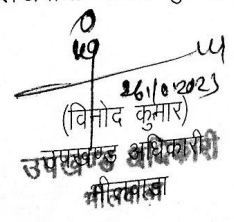 26/10/2023
(विनोद कुमार)
उपखण्ड अधिकारी
भीलवाड़ा